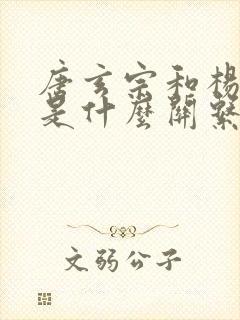 唐玄宗和楊
是什麼關繫
文弱公子